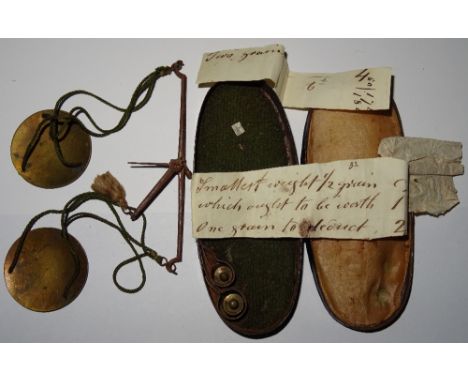 Two grain
6
4
82
Smallest weight 1/2 grain
which ought to be worth 1
One grain to deduct 2